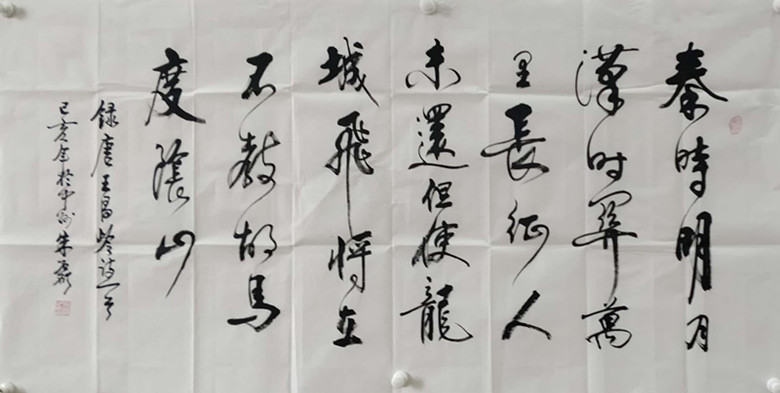 秦時明月
漢时關萬
里長征人
未還但使龍
城飛將在
不教胡馬
度陰山
録唐王昌齡詩一首
己亥年於中州朱磊